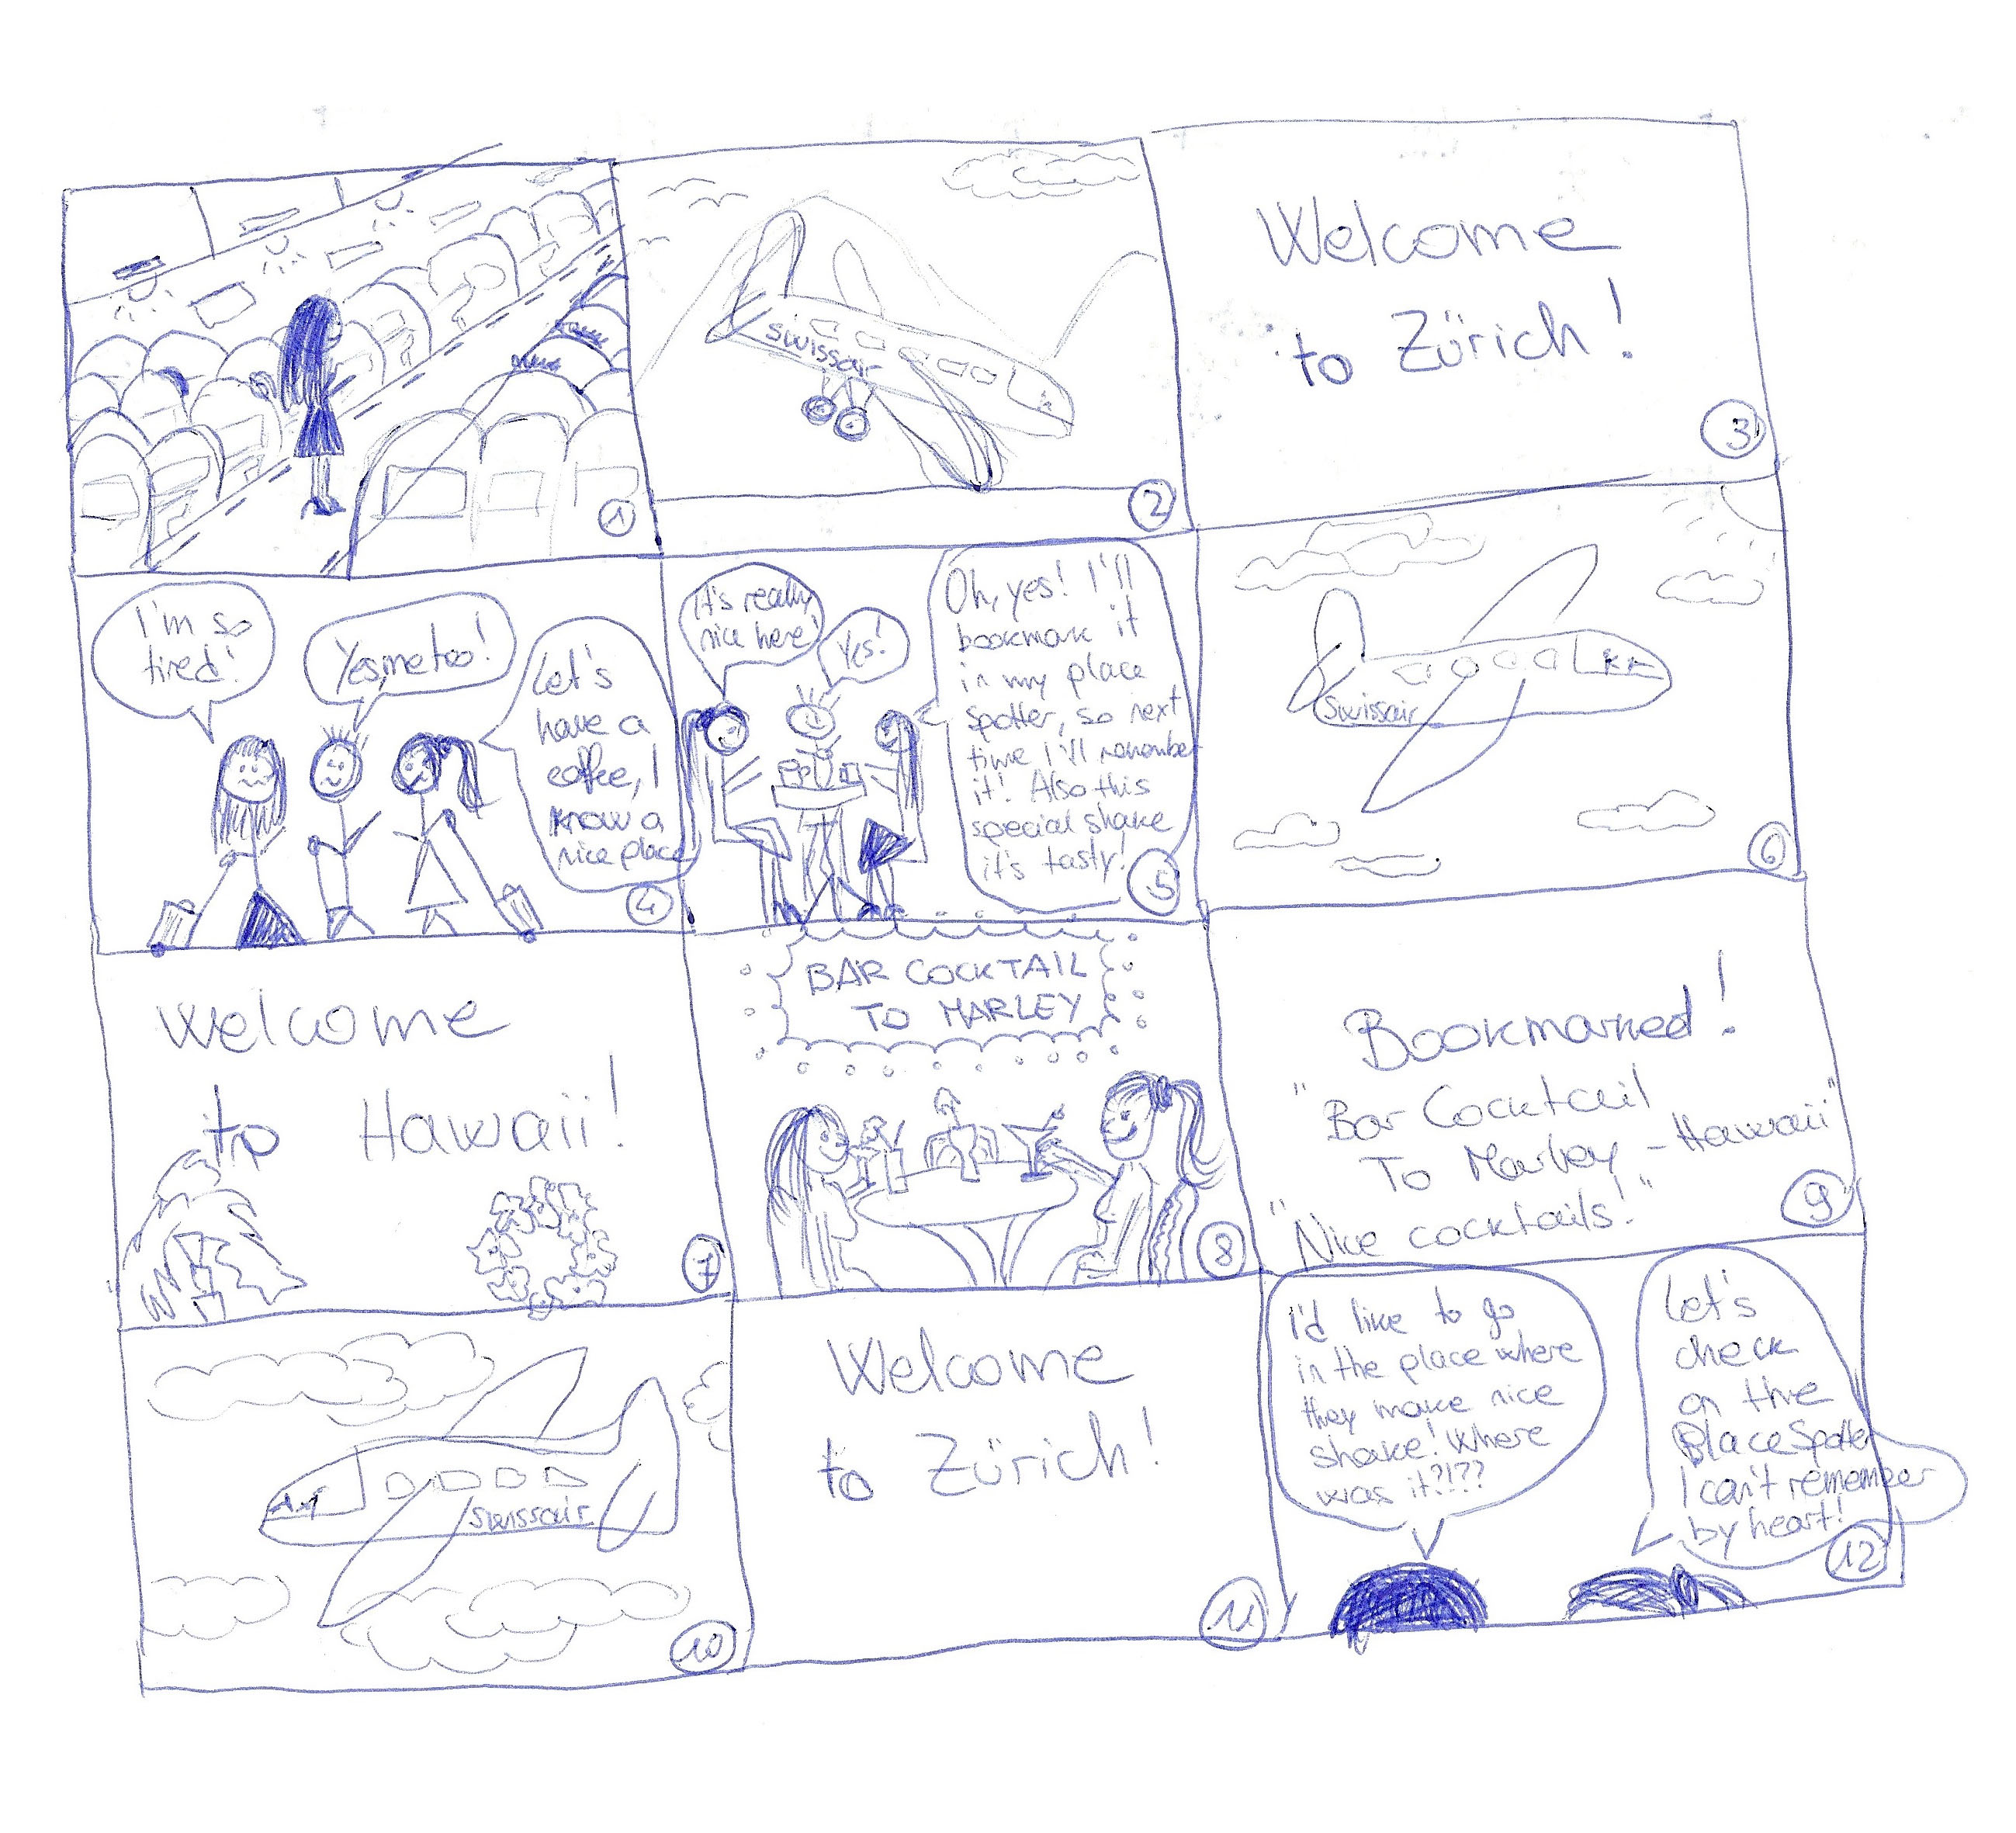 1
swissair
2
Welcome
to Zürich!
3
I'm so
tired!
Yes, me too!
Let's
have a
coffee, I
know a
nice place
4
It's really
nice here!
Yes!
Oh, yes! I'll
bookmark it
in my place
spotter, so next
time I'll remember
it! Also this
special shake
it's tasty!
5
swissair
6
Welcome
to Hawaii!
7
BAR COCKTAIL
TO MARLEY
8
Bookmarked!
"Bar Cocktail
To Marley - Hawaii"
"Nice cocktails!"
9
swissair
10
Welcome
to Zürich!
11
I'd like to go
in the place where
they make nice
shake! Where
was it?!??
Let's
check
on the
PlaceSpotter
I can't remember
by heart!
12